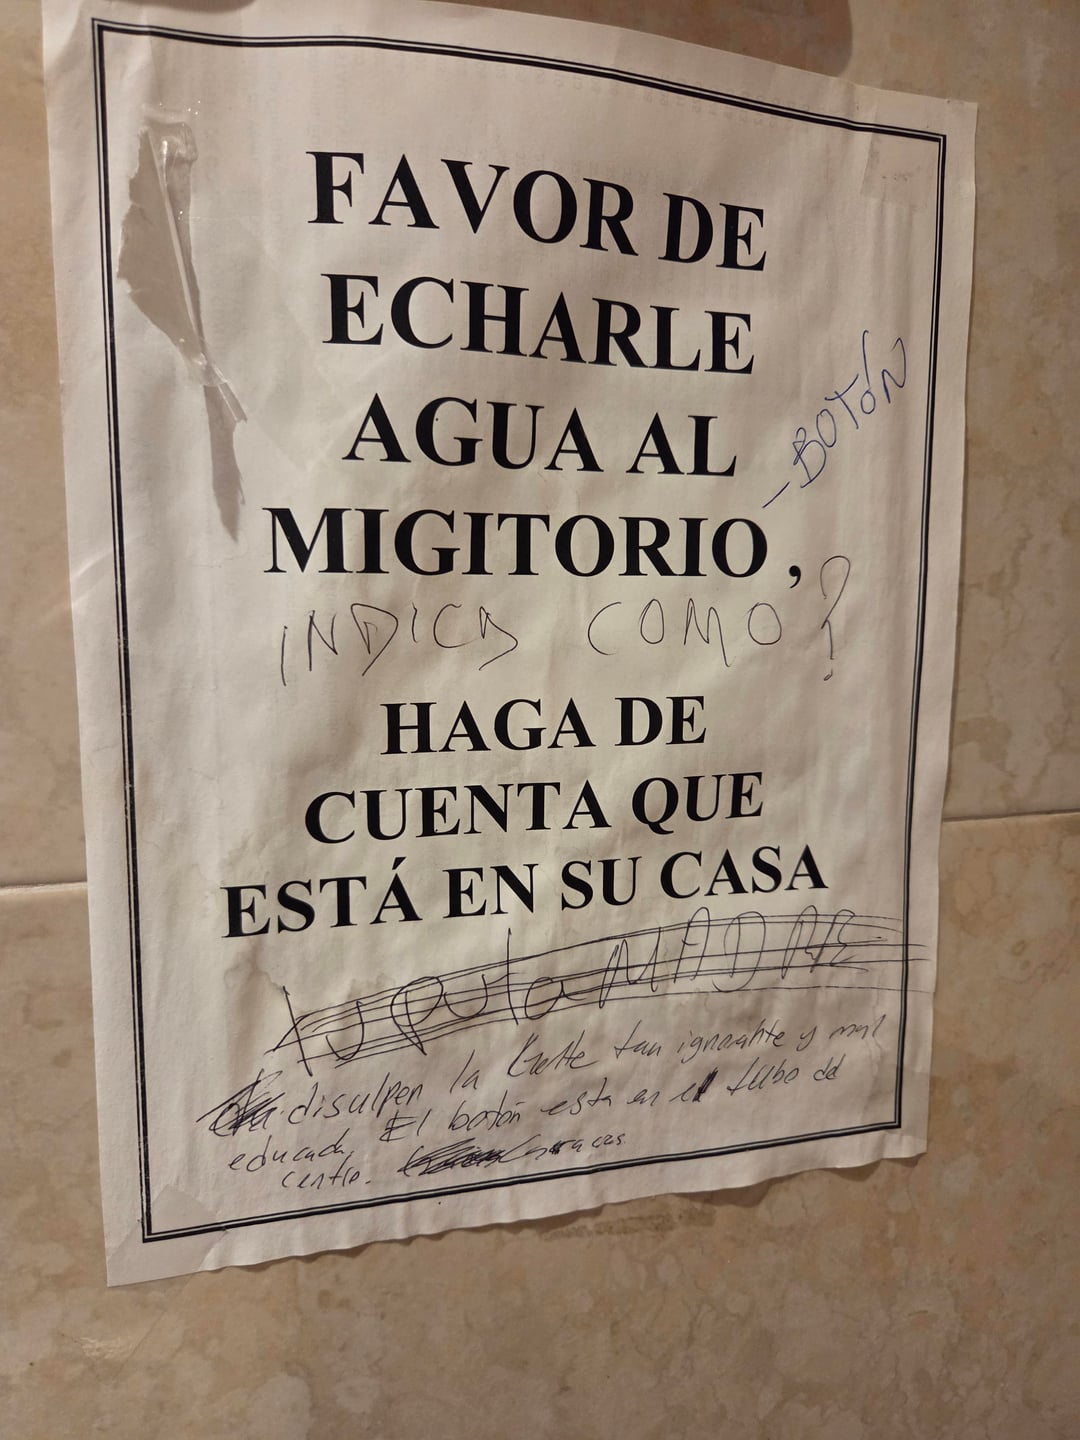 FAVOR DE
ECHARLE
AGUA AL
- BOTÓN
MIGITORIO,
INDICA COMO?
HAGA DE
CUENTA QUE
ESTÁ EN SU CASA
tu puta MADRE
disculpen la Gente tan ignorante y mal
educada, El botón esta en el tubo del
centro.